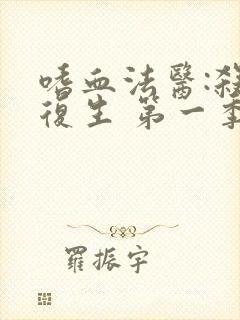 嗜血法醫:殺
復生 第一季
羅振宇